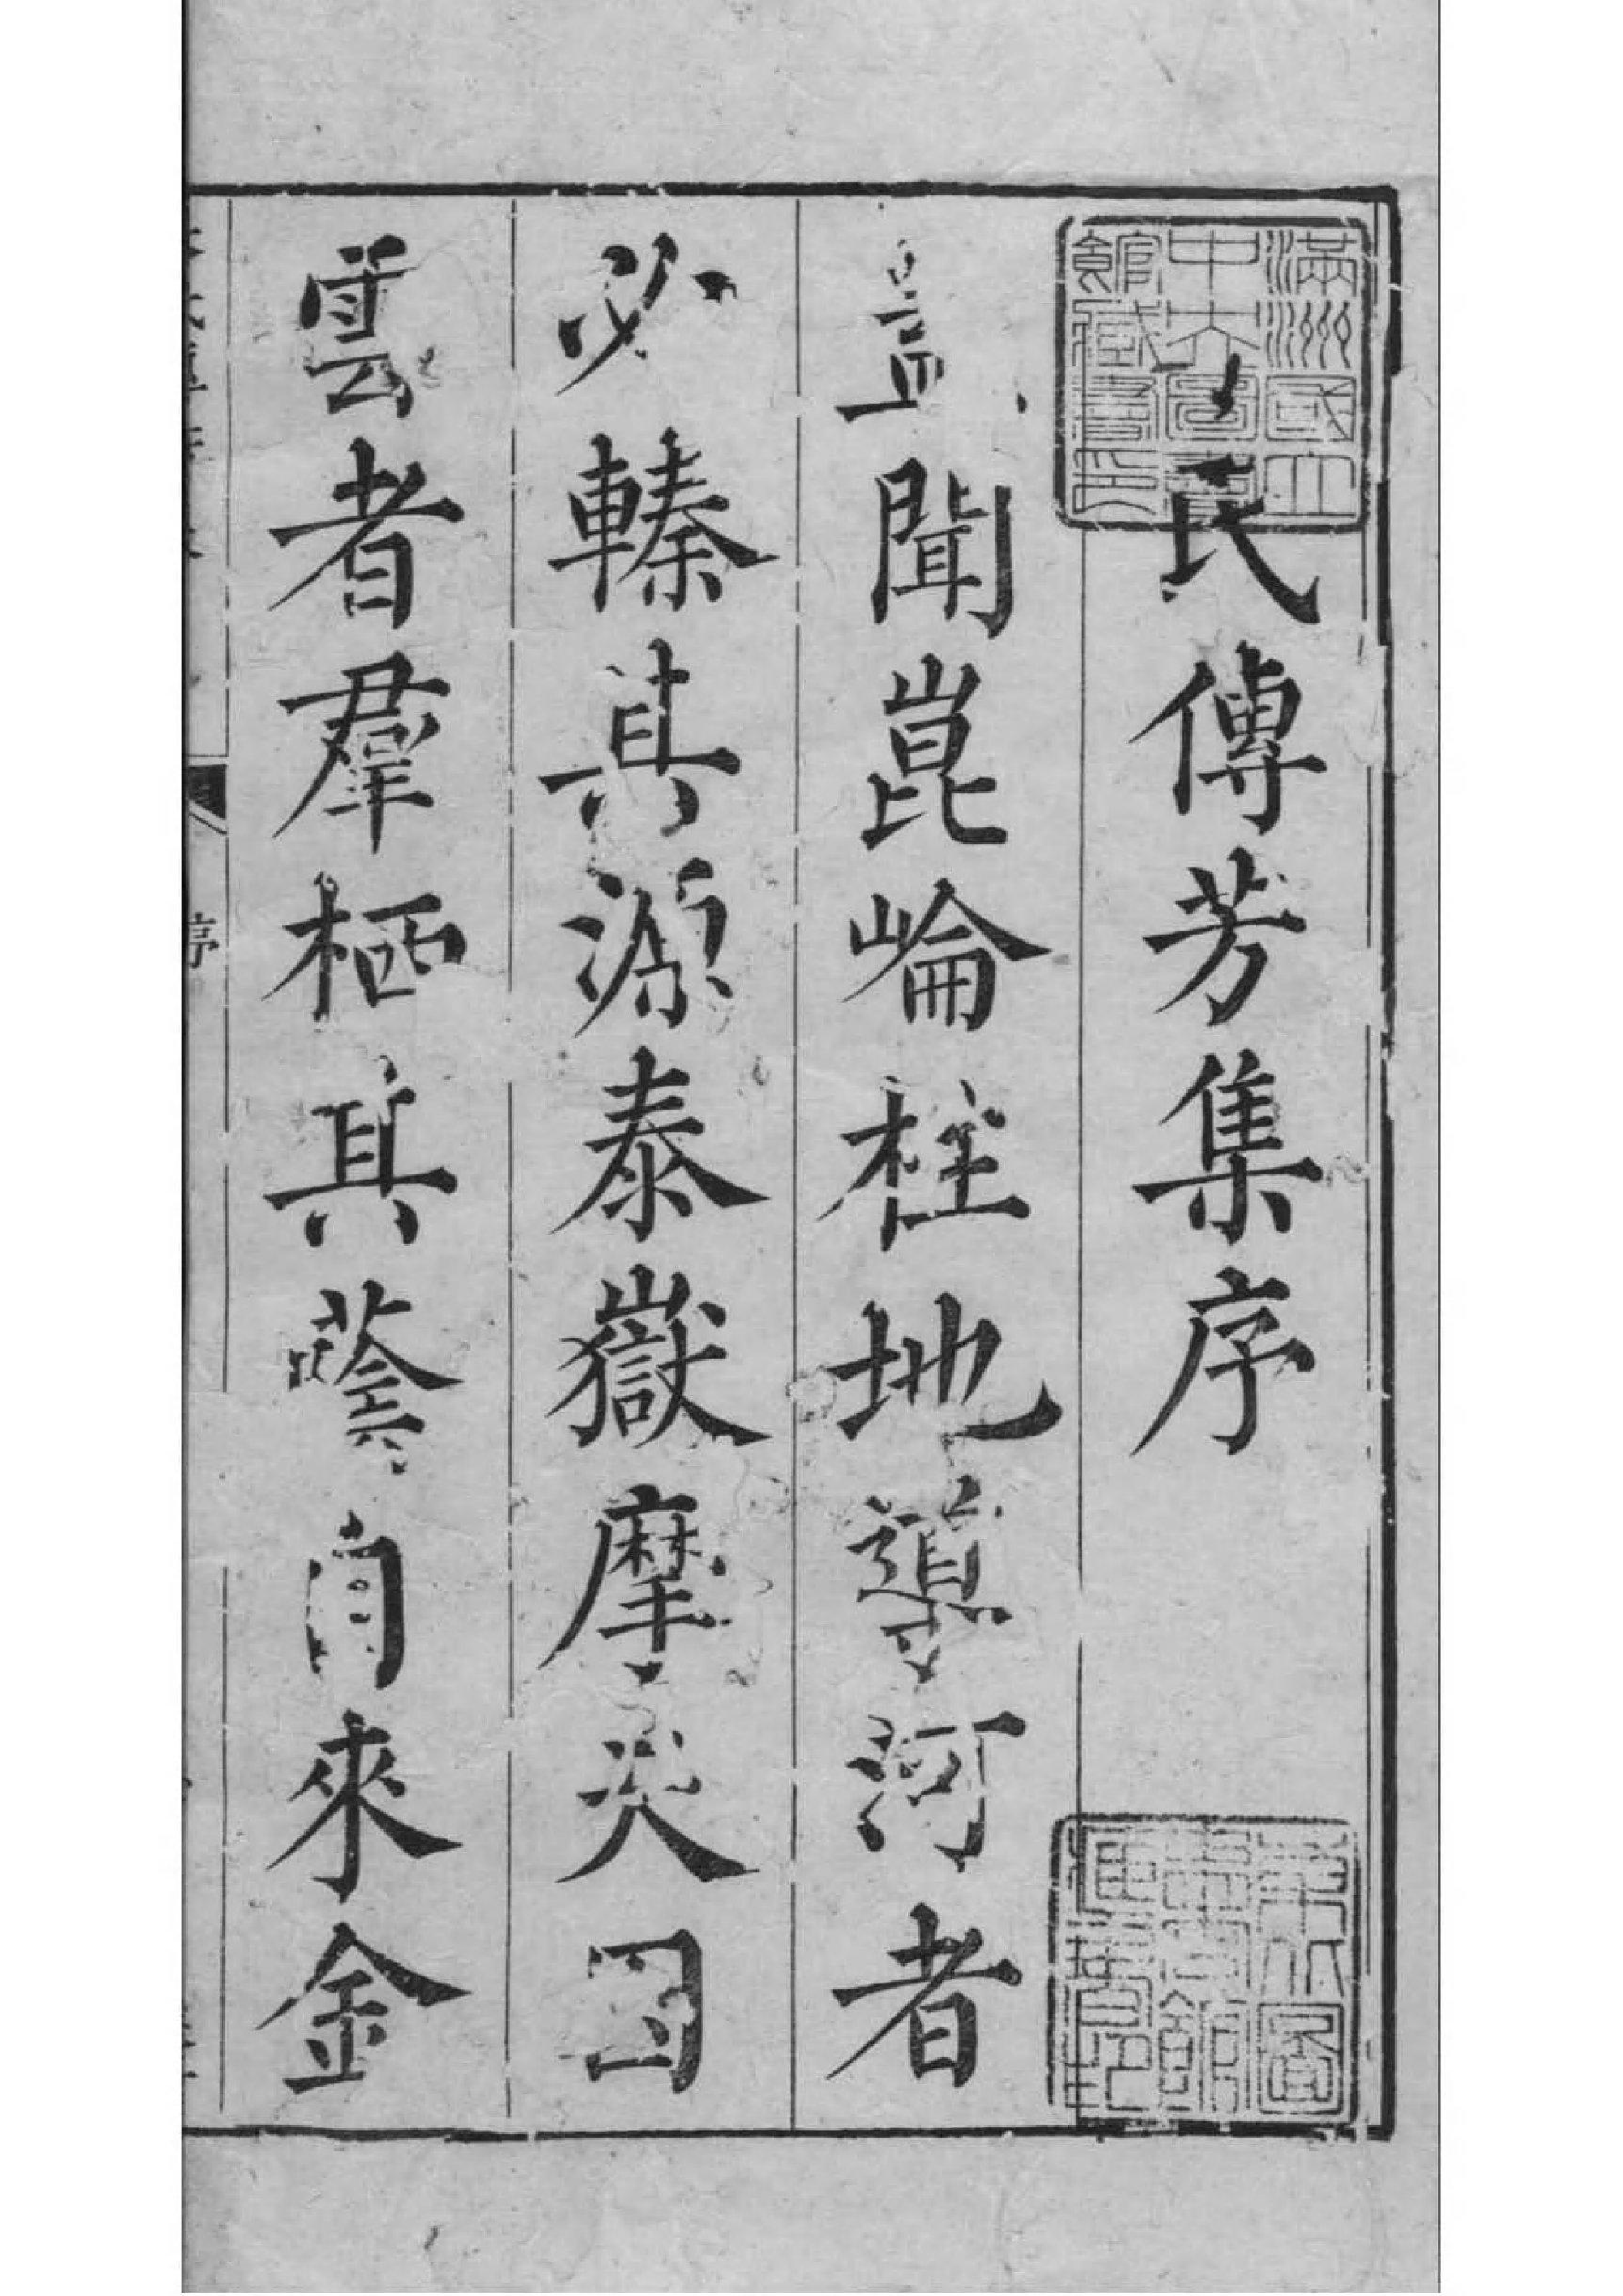 滿洲國立
中央圖書
館藏書印
氏傳芳集序
盖聞崑崙柱地導河者
必轃其源泰嶽摩天
雲者羣栖其蔭自來金
序